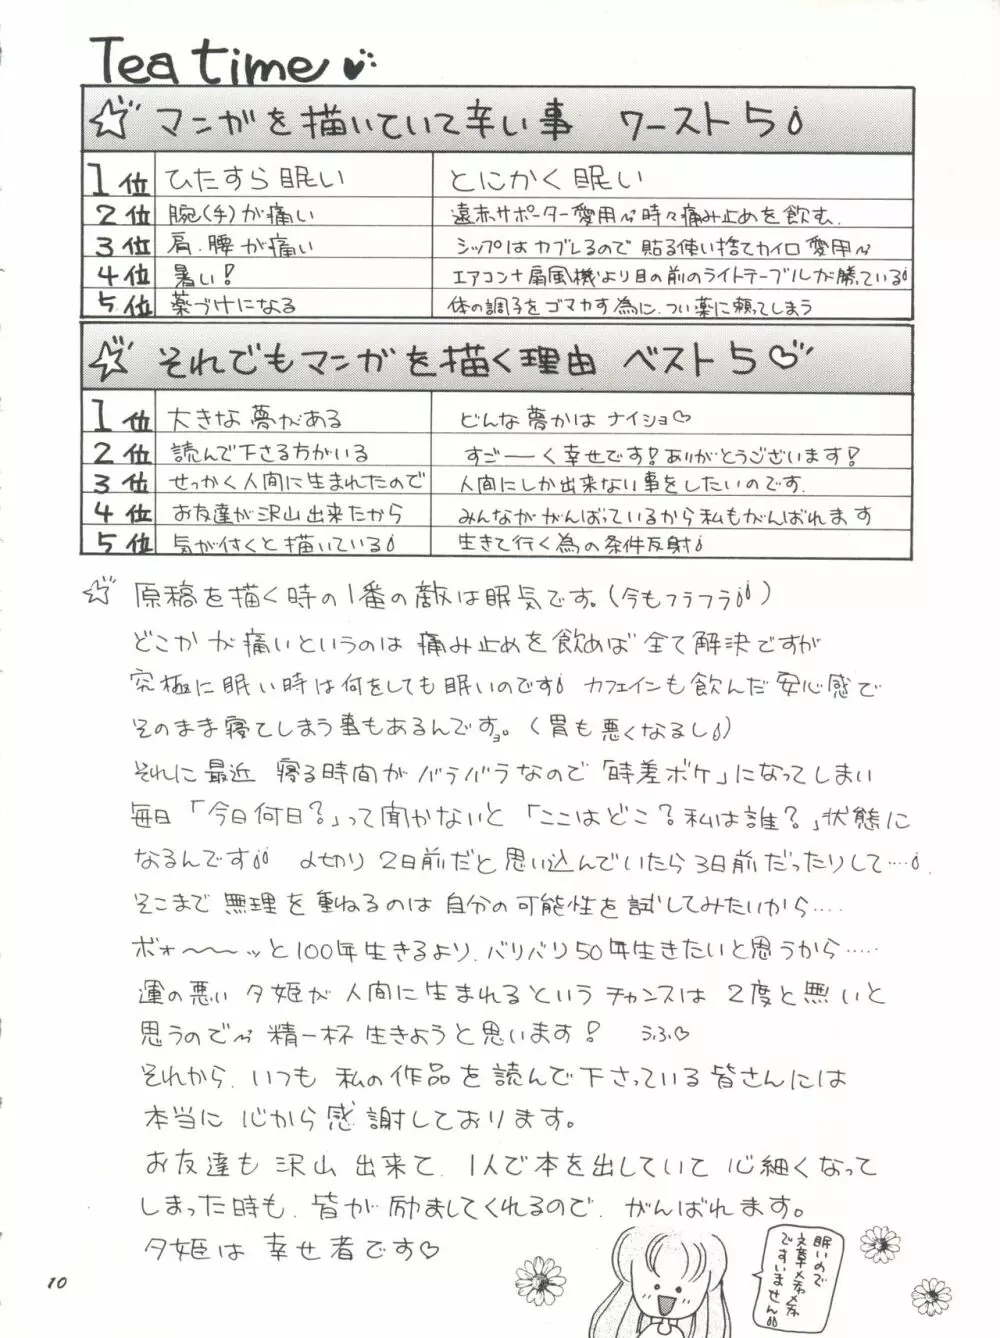 Tea time
マンガを描いていて辛い事 ワースト5
1位 ひたすら眠い とにかく眠い
2位 腕(手)が痛い 遠赤サポーター愛用〜時々痛み止めを飲む.
3位 肩.腰が痛い シップはカブレるので貼る使い捨てカイロ愛用〜
4位 暑い! エアコン+扇風機より目の前のライトテーブルが勝っている
5位 薬づけになる 体の調子をゴマカす為に.つい薬に頼ってしまう
それでもマンガを描く理由 ベスト5♡
1位 大きな夢がある どんな夢かはナイショ♡
2位 読んで下さる方がいる すご──く幸せです!ありがとうございます!
3位 せっかく人間に生まれたので 人間にしか出来ない事をしたいのです.
4位 お友達が沢山出来たから みんながんばっているから私もがんばれます
5位 気が付くと描いている 生きて行く為の条件反射
☆ 原稿を描く時の1番の敵は眠気です。(今もフラフラ)
どこかが痛いというのは痛み止めを飲めば全て解決ですが
究極に眠い時は何をしても眠いのです カフェインも飲んだ安心感で
そのまま寝てしまう事もあるんですョ。(胃も悪くなるし)
それに最近 寝る時間がバラバラなので「時差ボケ」になってしまい
毎日「今日何日?」って聞かないと「ここはどこ?私は誰?」状態に
なるんです 〆切り2日前だと思い込んでいたら3日前だったりして‥‥
そこまで無理を重ねるのは自分の可能性を試してみたいから‥‥
ボォ〜〜〜ッと100年生きるより.バリバリ50年生きたいと思うから‥‥‥
運の悪い夕姫が人間に生まれるというチャンスは2度と無いと
思うので〜精一杯生きようと思います! うふ♡
それから.いつも私の作品を読んで下さっている皆さんには
本当に心から感謝しております。
お友達も沢山出来て.1人で本を出していて心細くなって
しまった時も.皆が励ましてくれるので.がんばれます。
夕姫は幸せ者です♡
眠いので
文章メチャメチャ
ですいません
10